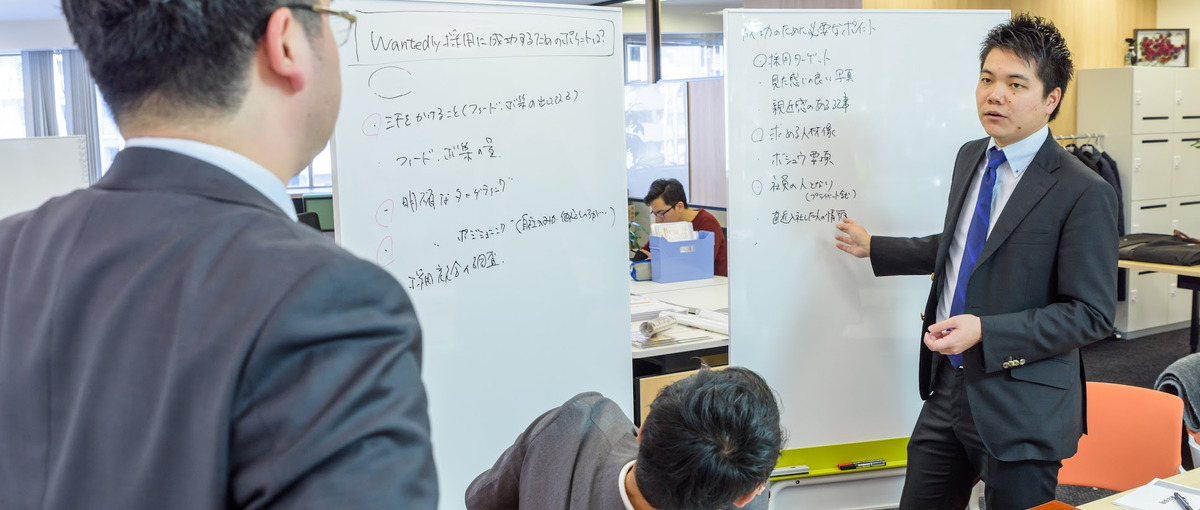 Wantedly 採用に成功するためのポイントは?
手をかけること(フィード、募集の出し方など)
フィード、募集の量
明確なターゲティング
〃 ポジショニング
採用競合の調査
成功のために必要なポイント
採用ターゲット
・見た感じの良い写真
・親近感のある記事
求める人材像
・ボシュウ要項
社員の人となり
(プライベートなど)
・直近入社した人の情報